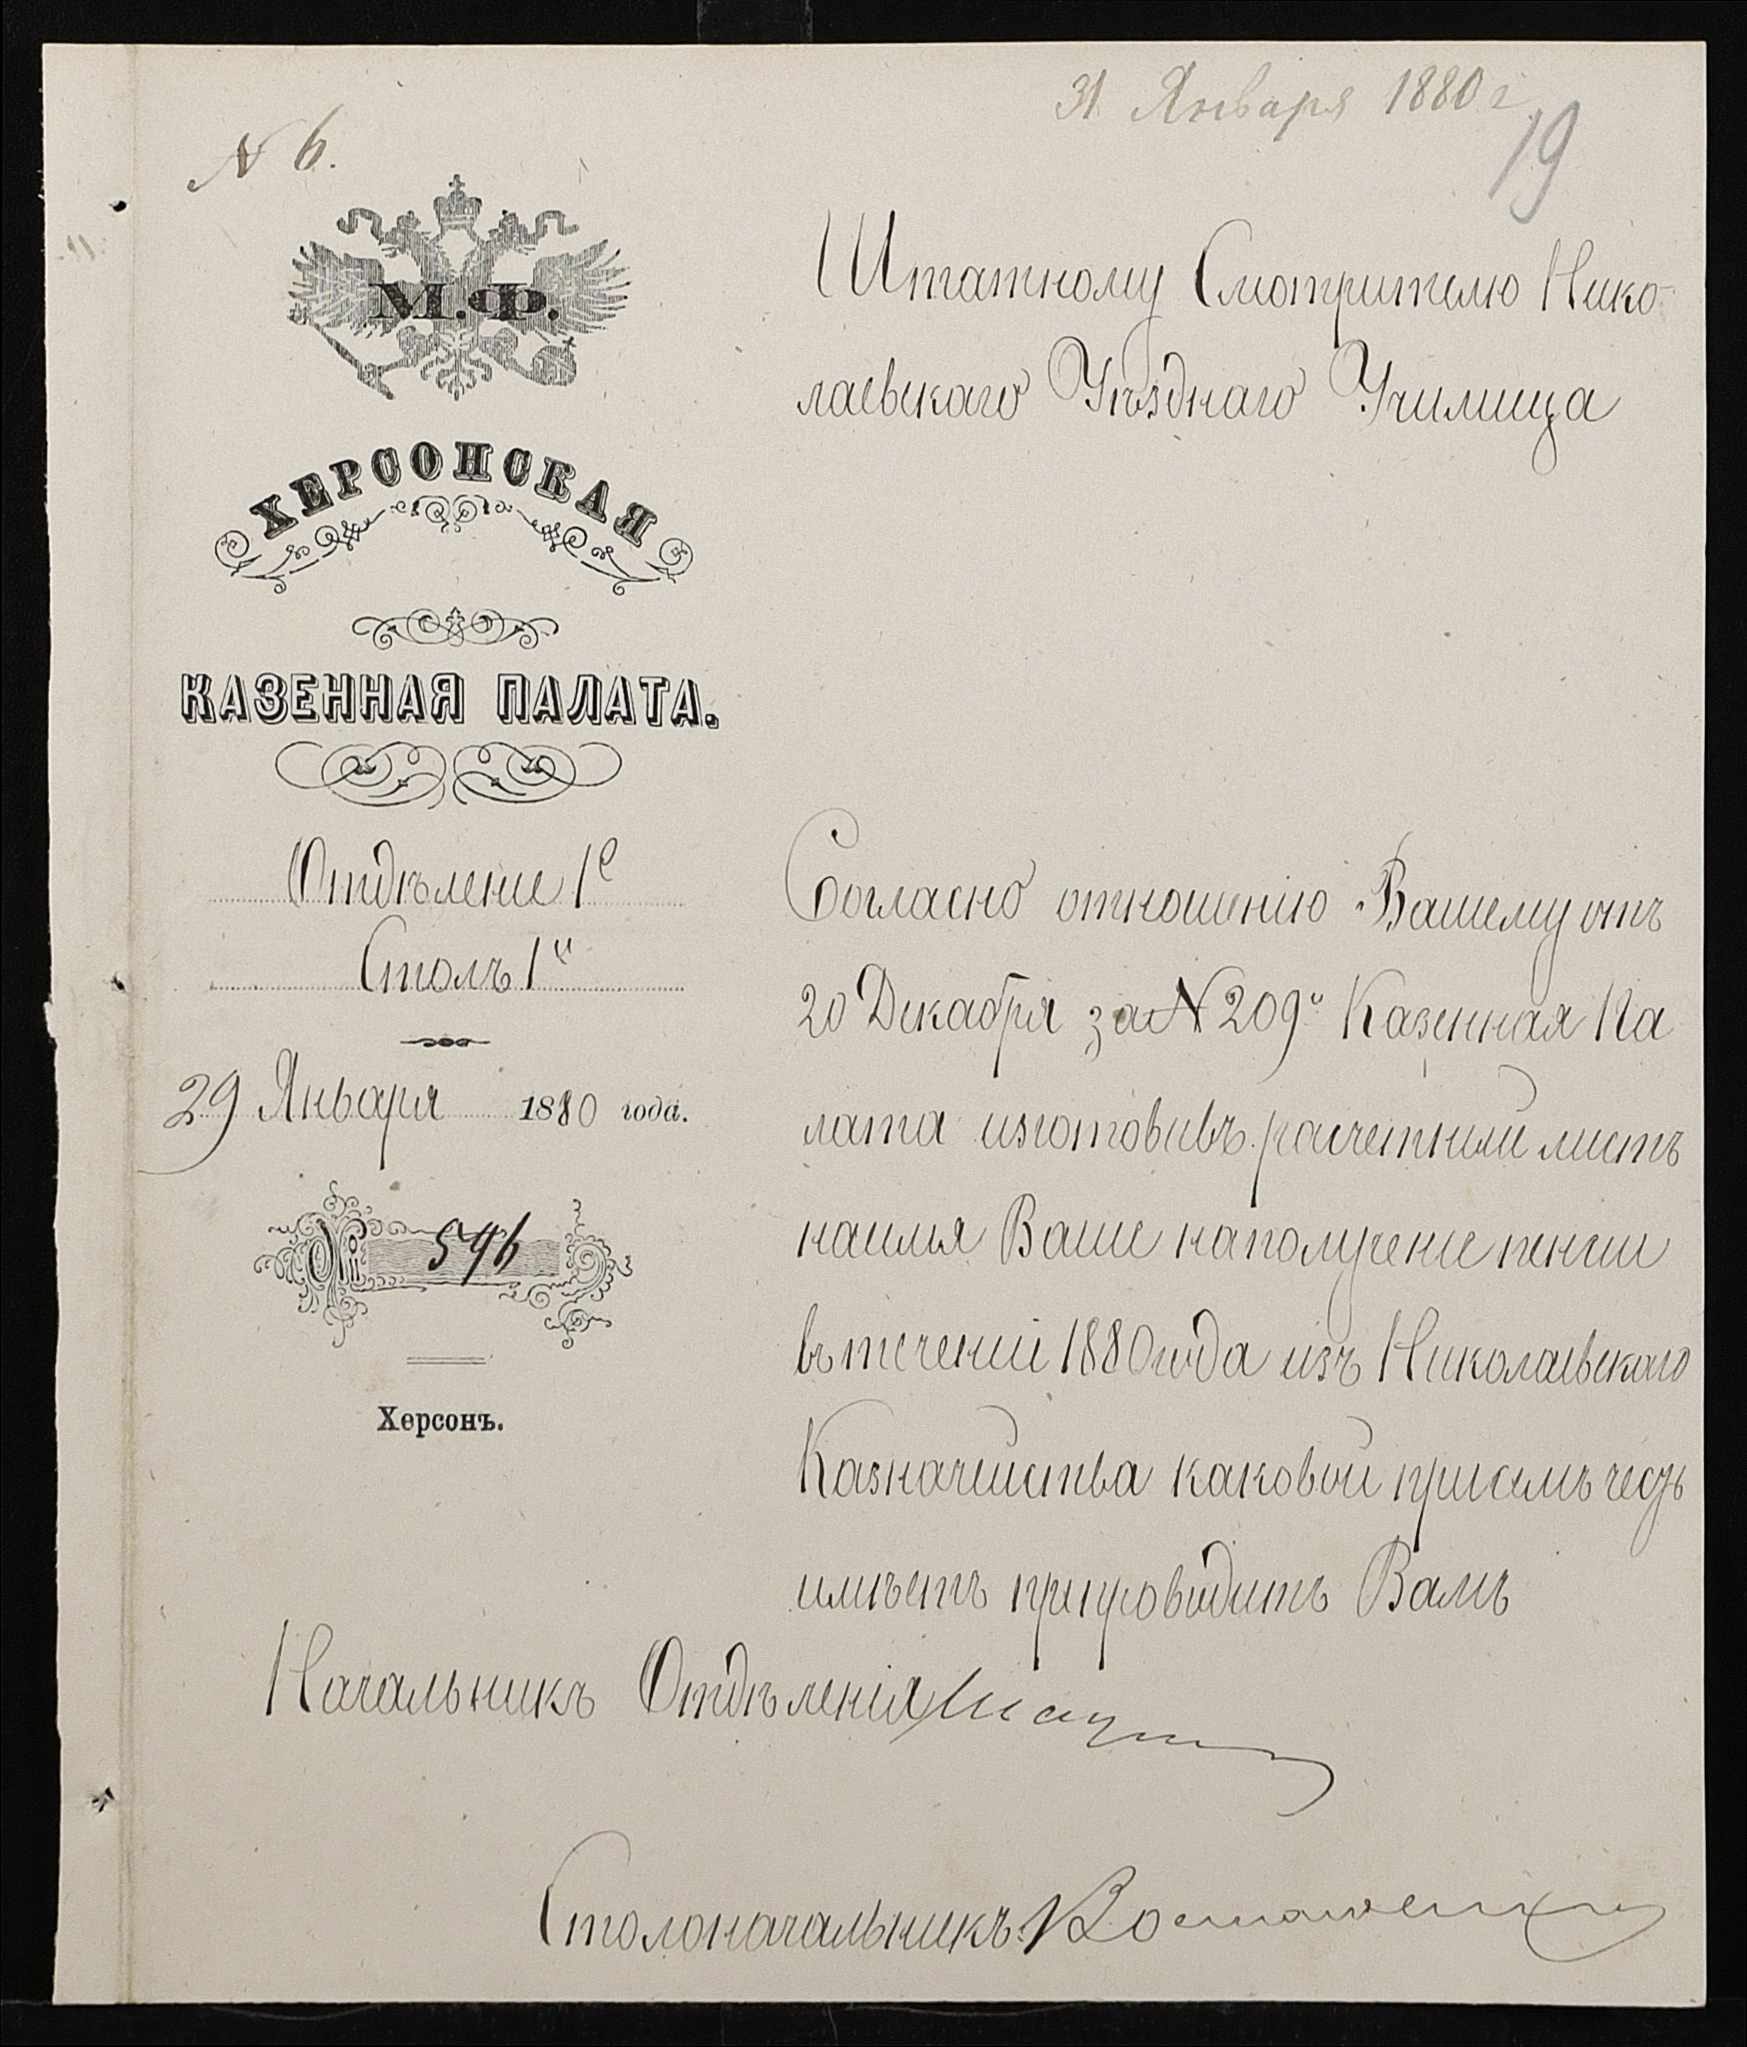 31 Января 1880 г
19
N 6.
М.Ф.
ХЕРСОНСКАЯ
КАЗЕННАЯ ПАЛАТА.
Отдѣление 1е
Столъ 1й
29 Января 1880 года.
№ 596
Херсонъ.
Штатному Смотрителю Нико-
лаевскаго Уѣзднаго Училища
Согласно отношенію Вашему отъ
20 Декабря за N 209 Казенная Па
лата изготовивъ расчетный листъ
на имя Ваше на получение пенсии
въ течении 1880 года изъ Николаевскаго
Казначейства каковой при семъ честь
имѣетъ препроводить Вамъ
Начальникъ Отдѣленія
Столоначальникъ